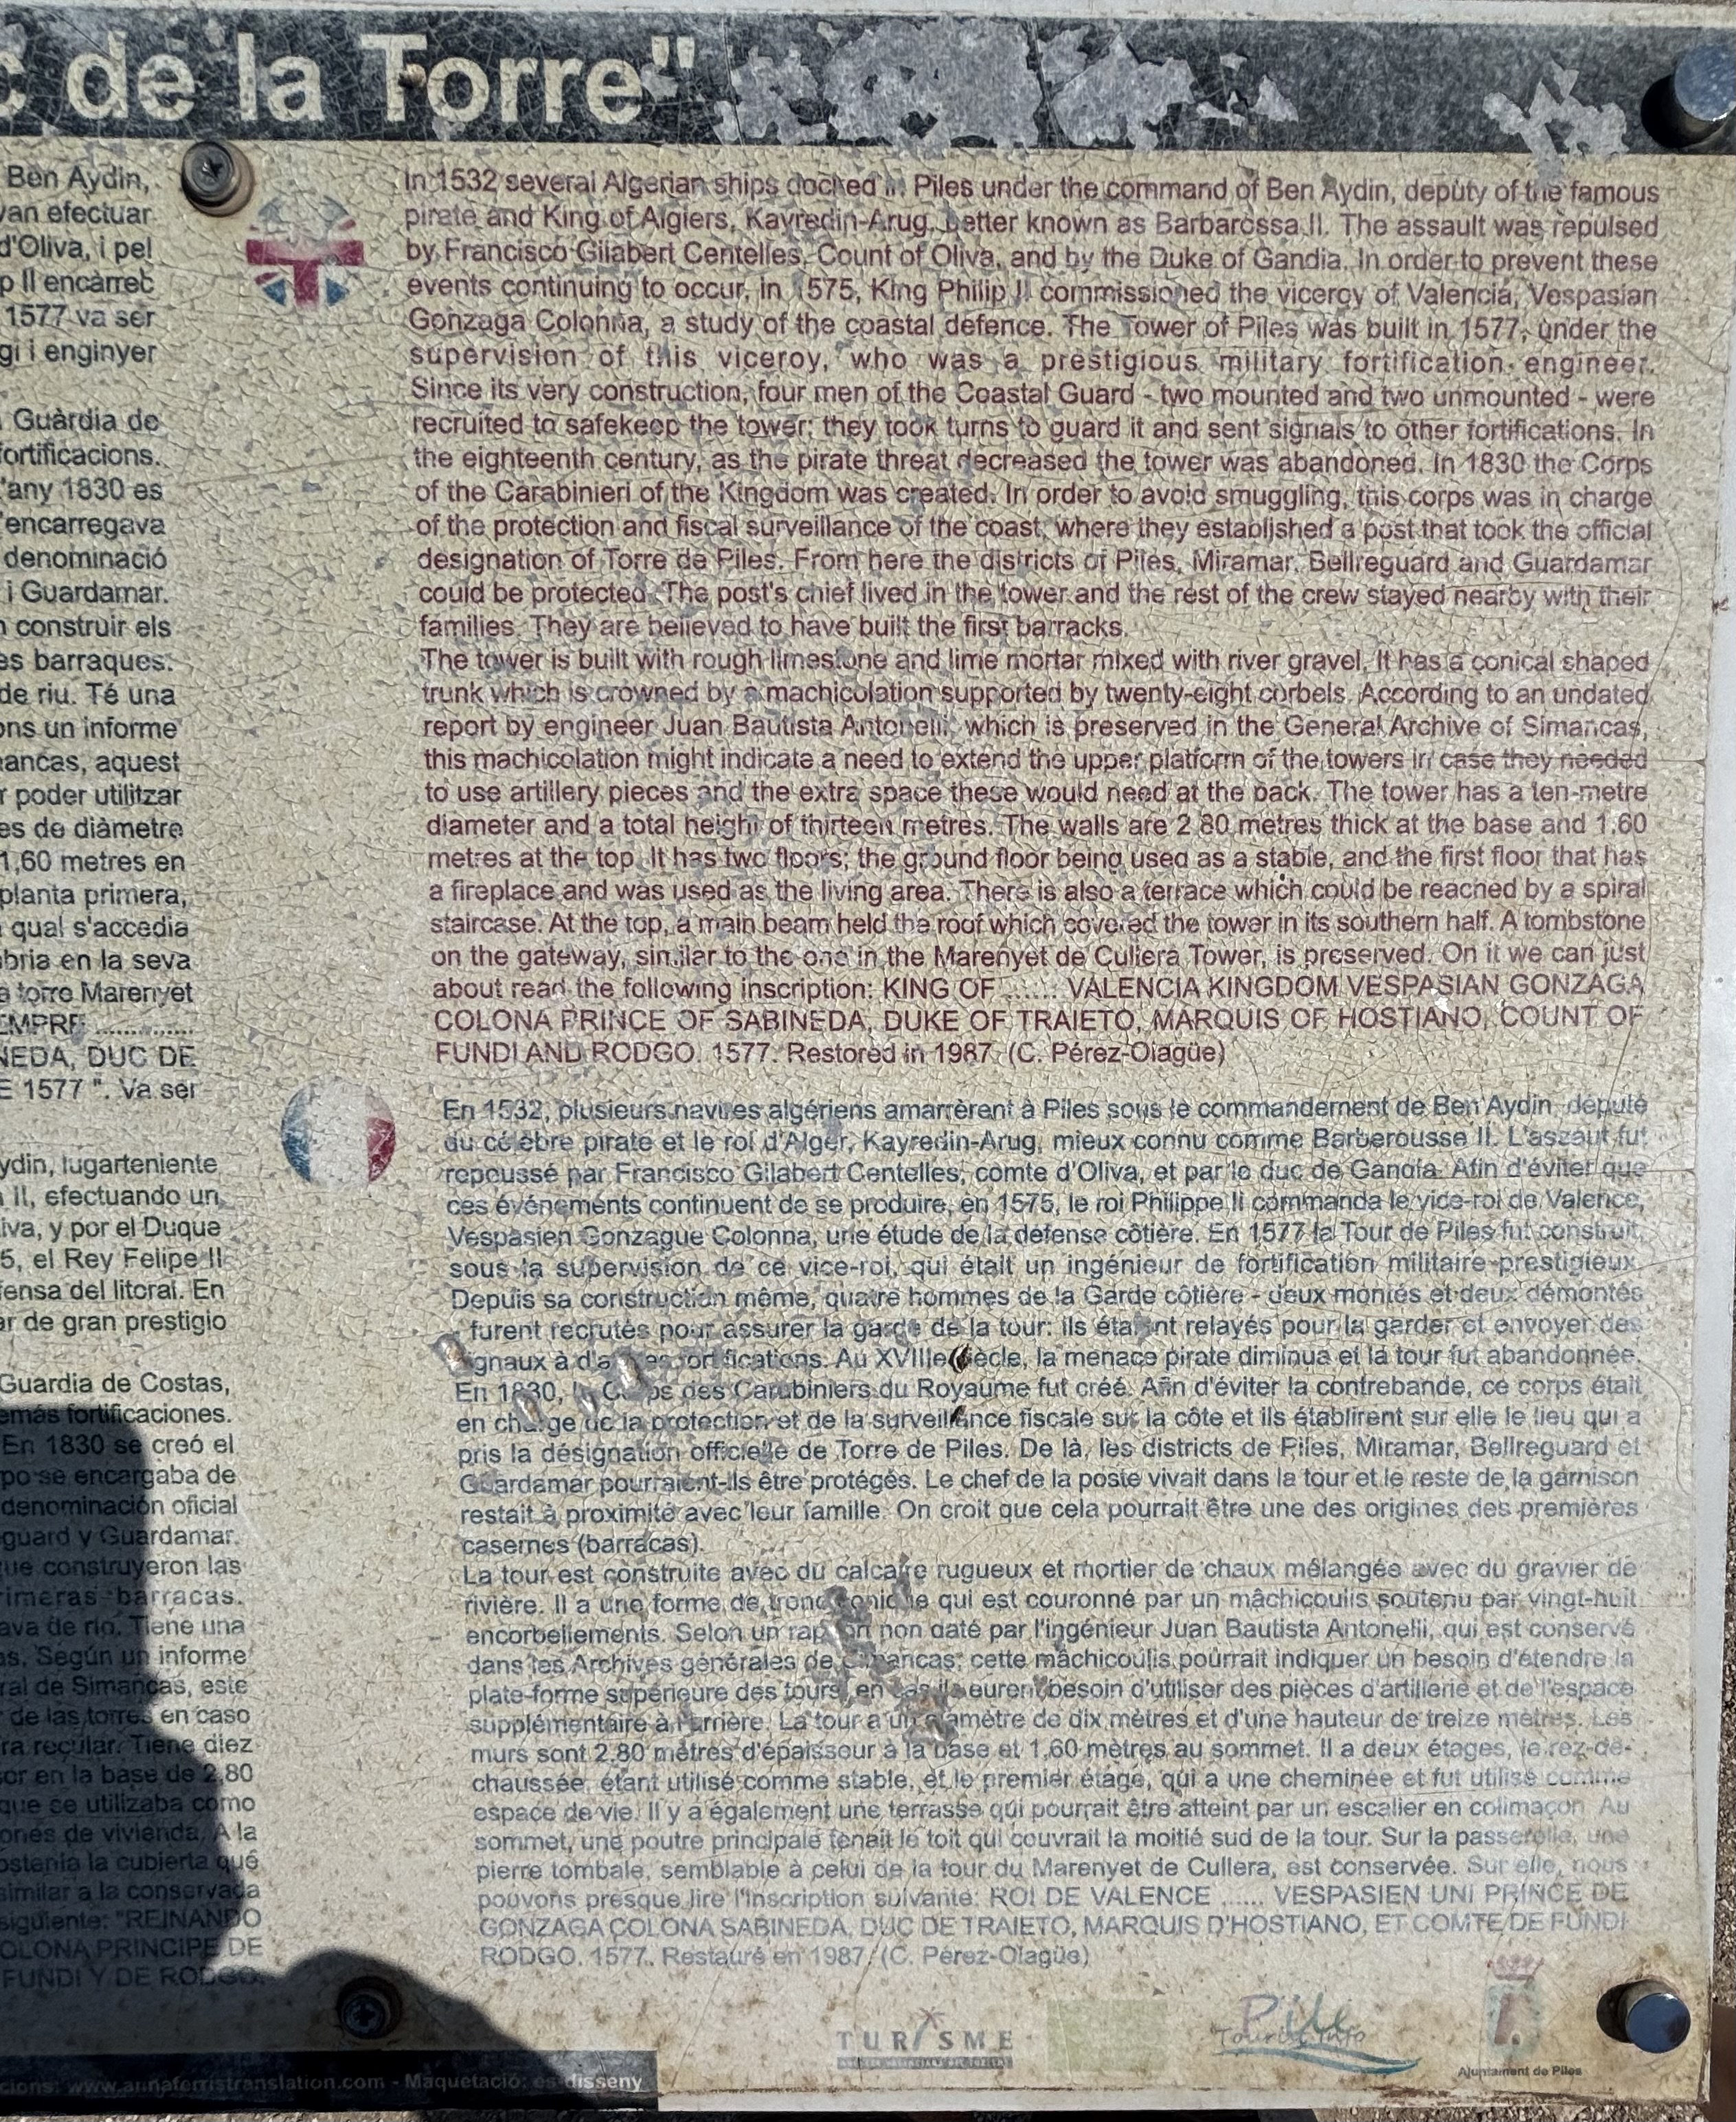 c de la Torre"
Ben Aydin,
van efectuar
d'Oliva, i pel
p II encàrrec
1577 va ser
gi i enginyer
Guàrdia de
fortificacions.
'any 1830 es
'encarregava
denominació
i Guardamar.
n construir els
es barraques.
de riu. Té una
ons un informe
ancas, aquest
r poder utilitzar
es de diàmetre
1,60 metres en
planta primera,
a qual s'accedia
obria en la seva
a torre Marenyet
EMPRE .............
NEDA, DUC DE
E 1577 ". Va ser
ydin, lugarteniente
a II, efectuando un
iva, y por el Duque
5, el Rey Felipe II
fensa del litoral. En
ar de gran prestigio
Guardia de Costas,
emás fortificaciones.
En 1830 se creó el
po se encargaba de
denominación oficial
eguard y Guardamar.
que construyeron las
rimeras barracas.
ava de río. Tiene una
as. Según un informe
ral de Simancas, este
r de las torres en caso
ra recular. Tiene diez
sor en la base de 2,80
que se utilizaba como
ones de vivienda. A la
ostenía la cubierta qué
similar a la conservada
siguiente: "REINANDO
OLONA PRINCIPE DE
FUNDI Y DE RODGO.
In 1532 several Algerian ships docked in Piles under the command of Ben Aydin, deputy of the famous
pirate and King of Algiers, Kayredin-Arug, better known as Barbarossa II. The assault was repulsed
by Francisco Gilabert Centelles, Count of Oliva, and by the Duke of Gandia. In order to prevent these
events continuing to occur, in 1575, King Philip II commissioned the viceroy of Valencia, Vespasian
Gonzaga Colonna, a study of the coastal defence. The Tower of Piles was built in 1577, under the
supervision of this viceroy, who was a prestigious military fortification engineer.
Since its very construction, four men of the Coastal Guard - two mounted and two unmounted - were
recruited to safekeep the tower; they took turns to guard it and sent signals to other fortifications. In
the eighteenth century, as the pirate threat decreased the tower was abandoned. In 1830 the Corps
of the Carabinieri of the Kingdom was created. In order to avoid smuggling, this corps was in charge
of the protection and fiscal surveillance of the coast, where they established a post that took the official
designation of Torre de Piles. From here the districts of Piles, Miramar, Bellreguard and Guardamar
could be protected. The post's chief lived in the tower and the rest of the crew stayed nearby with their
families. They are believed to have built the first barracks.
The tower is built with rough limestone and lime mortar mixed with river gravel. It has a conical shaped
trunk which is crowned by a machicolation supported by twenty-eight corbels. According to an undated
report by engineer Juan Bautista Antonelli, which is preserved in the General Archive of Simancas,
this machicolation might indicate a need to extend the upper platform of the towers in case they needed
to use artillery pieces and the extra space these would need at the back. The tower has a ten-metre
diameter and a total height of thirteen metres. The walls are 2.80 metres thick at the base and 1.60
metres at the top. It has two floors; the ground floor being used as a stable, and the first floor that has
a fireplace and was used as the living area. There is also a terrace which could be reached by a spiral
staircase. At the top, a main beam held the roof which covered the tower in its southern half. A tombstone
on the gateway, similar to the one in the Marenyet de Cullera Tower, is preserved. On it we can just
about read the following inscription: KING OF ...... VALENCIA KINGDOM VESPASIAN GONZAGA
COLONA PRINCE OF SABINEDA, DUKE OF TRAIETO, MARQUIS OF HOSTIANO, COUNT OF
FUNDI AND RODGO. 1577. Restored in 1987. (C. Pérez-Olagüe)
En 1532, plusieurs navires algériens amarrèrent à Piles sous le commandement de Ben Aydin, député
du célèbre pirate et le roi d'Alger, Kayredin-Arug, mieux connu comme Barberousse II. L'assaut fut
repoussé par Francisco Gilabert Centelles, comte d'Oliva, et par le duc de Gandia. Afin d'éviter que
ces événements continuent de se produire, en 1575, le roi Philippe II commanda le vice-roi de Valence,
Vespasien Gonzague Colonna, une étude de la défense côtière. En 1577 la Tour de Piles fut construit,
sous la supervision de ce vice-roi, qui était un ingénieur de fortification militaire prestigieux.
Depuis sa construction même, quatre hommes de la Garde côtière - deux montés et deux démontés
- furent recrutés pour assurer la garde de la tour: ils étaient relayés pour la garder et envoyer des
signaux à d'autres fortifications. Au XVIIIe siècle, la menace pirate diminua et la tour fut abandonnée.
En 1830, le Corps des Carabiniers du Royaume fut créé. Afin d'éviter la contrebande, ce corps était
en charge de la protection et de la surveillance fiscale sur la côte et ils établirent sur elle le lieu qui a
pris la désignation officielle de Torre de Piles. De là, les districts de Piles, Miramar, Bellreguard et
Guardamar pourraient-ils être protégés. Le chef de la poste vivait dans la tour et le reste de la garnison
restait à proximité avec leur famille. On croit que cela pourrait être une des origines des premières
casernes (barracas).
La tour est construite avec du calcaire rugueux et mortier de chaux mélangée avec du gravier de
rivière. Il a une forme de tronc conique qui est couronné par un mâchicoulis soutenu par vingt-huit
encorbellements. Selon un rapport non daté par l'ingénieur Juan Bautista Antonelli, qui est conservé
dans les Archives générales de Simancas, cette mâchicoulis pourrait indiquer un besoin d'étendre la
plate-forme supérieure des tours, en cas ils eurent besoin d'utiliser des pièces d'artillerie et de l'espace
supplémentaire à l'arrière. La tour a un diamètre de dix mètres et d'une hauteur de treize mètres. Les
murs sont 2,80 mètres d'épaisseur à la base et 1,60 mètres au sommet. Il a deux étages, le rez-de-
chaussée, étant utilisé comme stable, et le premier étage, qui a une cheminée et fut utilisé comme
espace de vie. Il y a également une terrasse qui pourrait être atteint par un escalier en colimaçon. Au
sommet, une poutre principale tenait le toit qui couvrait la moitié sud de la tour. Sur la passerelle, une
pierre tombale, semblable à celui de la tour du Marenyet de Cullera, est conservée. Sur elle, nous
pouvons presque lire l'inscription suivante: ROI DE VALENCE ...... VESPASIEN UNI PRINCE DE
GONZAGA COLONA SABINEDA, DUC DE TRAIETO, MARQUIS D'HOSTIANO, ET COMTE DE FUNDI
RODGO. 1577. Restauré en 1987. (C. Pérez-Olagüe)
TURISME
Piles
Tourist Info
Ajuntament de Piles
cions: www.annaferristranslation.com - Maquetació: es disseny